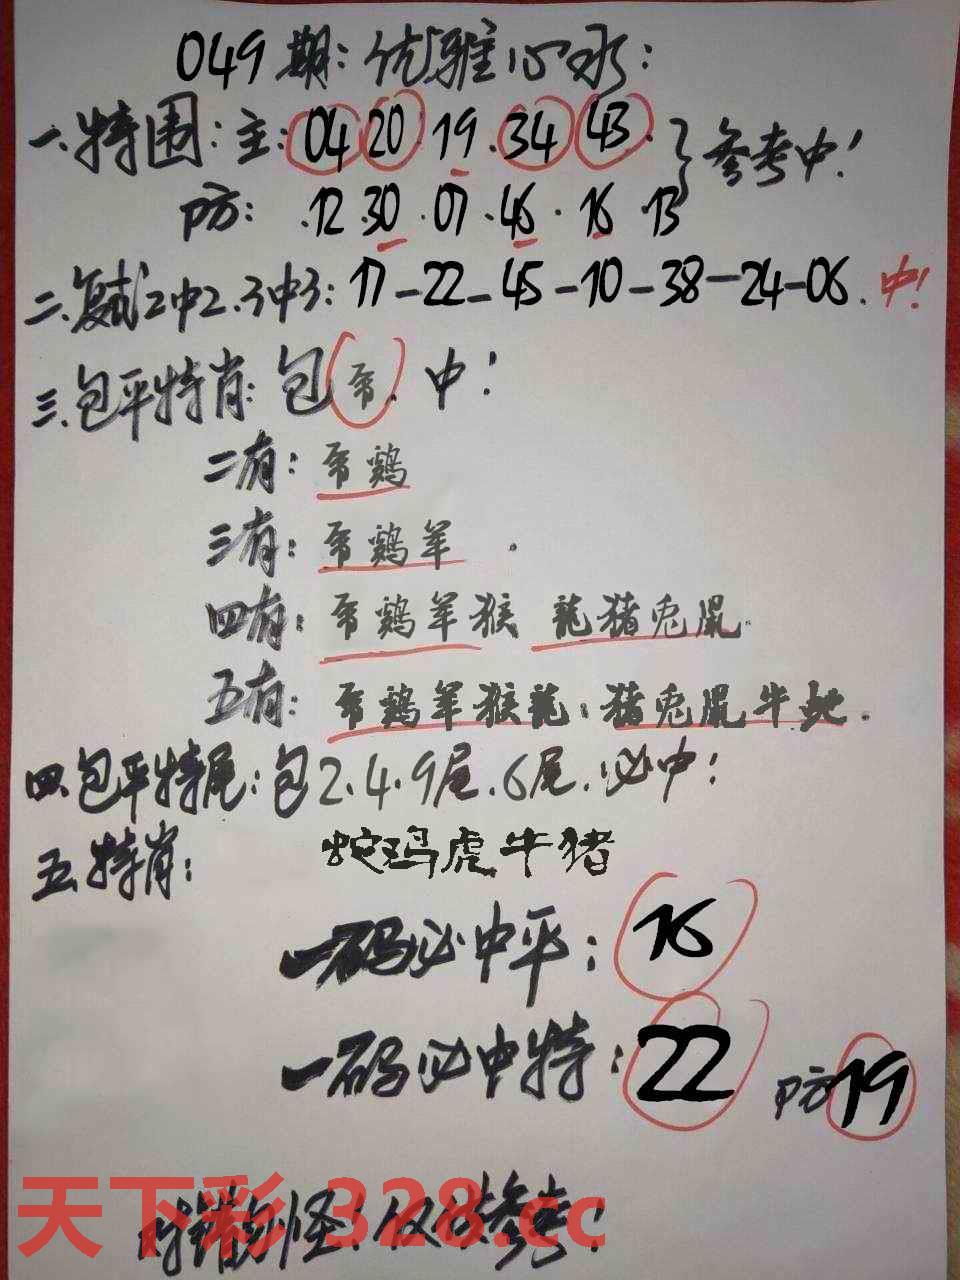 049期:优雅心水:
一.特围:主:04 20·19·34·43·}参考中!
防:·12·30·07·46·16·13
二.复试2中2.3中3:17-22-45-10-38-24-06.中!
三.包平特肖:包.中!
二有:鸡
三有:鸡羊.
四有:鸡羊猴 龍猪兎鼠.
五有:鸡羊猴龍;猪兎鼠牛虵.
四.包平特尾:包2.4.9尾.6尾.必中!
五.特肖: 蛇鸡虎牛猪
一码必中平:16
一码必中特:22 防19
对错勿怪!仅供参考!
天下彩 328.cc